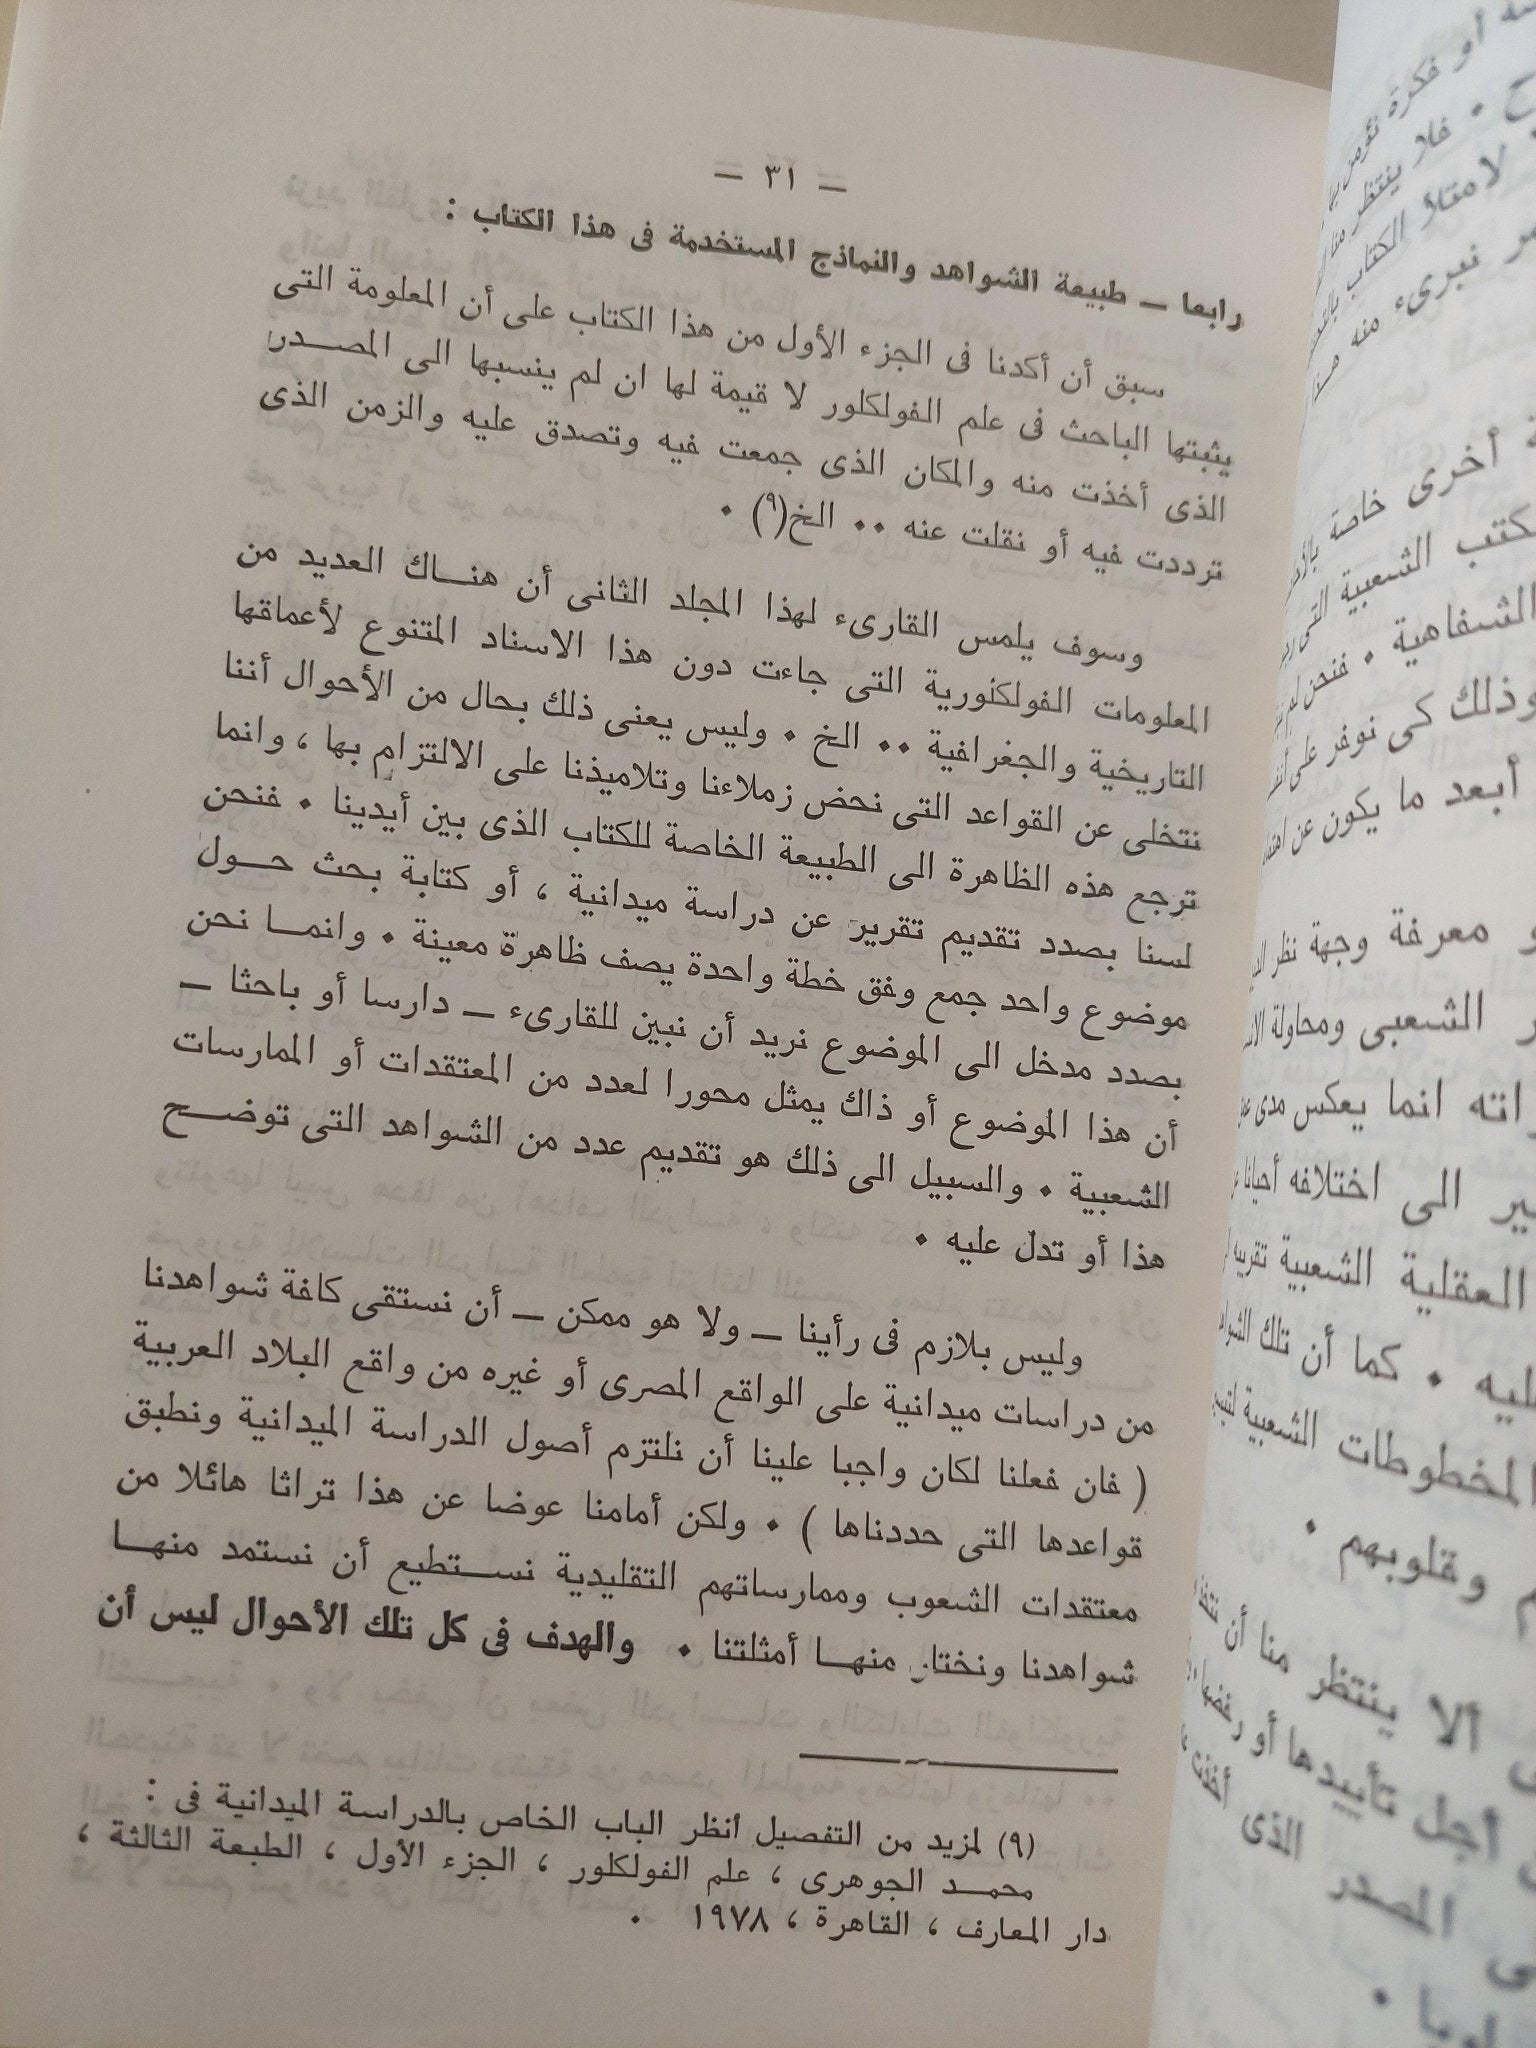 — ٣١ —
رابعا — طبيعة الشواهد والنماذج المستخدمة فى هذا الكتاب :
سبق أن أكدنا فى الجزء الأول من هذا الكتاب على أن المعلومة التى
يثبتها الباحث فى علم الفولكلور لا قيمة لها ان لم ينسبها الى المصدر
الذى أخذت منه والمكان الذى جمعت فيه وتصدق عليه والزمن الذى
ترددت فيه أو نقلت عنه ٠٠ الخ(٩) ٠
وسوف يلمس القارىء لهذا المجلد الثانى أن هناك العديد من
المعلومات الفولكلورية التى جاءت دون هذا الاسناد المتنوع لأعماقها
التاريخية والجغرافية ٠٠ الخ ٠ وليس يعنى ذلك بحال من الأحوال أننا
نتخلى عن القواعد التى نحض زملاءنا وتلاميذنا على الالتزام بها ، وانما
ترجع هذه الظاهرة الى الطبيعة الخاصة للكتاب الذى بين أيدينا ٠ فنحن
لسنا بصدد تقديم تقرير عن دراسة ميدانية ، أو كتابة بحث حول
موضوع واحد جمع وفق خطة واحدة يصف ظاهرة معينة ٠ وانما نحن
بصدد مدخل الى الموضوع نريد أن نبين للقارىء — دارسا أو باحثا —
أن هذا الموضوع أو ذاك يمثل محورا لعدد من المعتقدات أو الممارسات
الشعبية ٠ والسبيل الى ذلك هو تقديم عدد من الشواهد التى توضح
هذا أو تدل عليه ٠
وليس بلازم فى رأينا — ولا هو ممكن — أن نستقى كافة شواهدنا
من دراسات ميدانية على الواقع المصرى أو غيره من واقع البلاد العربية
( فان فعلنا لكان واجبا علينا أن نلتزم أصول الدراسة الميدانية ونطبق
قواعدها التى حددناها ) ٠ ولكن أمامنا عوضا عن هذا تراثا هائلا من
معتقدات الشعوب وممارساتهم التقليدية نستطيع أن نستمد منها
شواهدنا ونختار منها أمثلتنا ٠ والهدف فى كل تلك الأحوال ليس أن
(٩) لمزيد من التفصيل أنظر الباب الخاص بالدراسة الميدانية فى :
محمد الجوهرى ، علم الفولكلور ، الجزء الأول ، الطبعة الثالثة ،
دار المعارف ، القاهرة ، ١٩٧٨ ٠
أو فكرة نؤمن بها
٠ فلا ينتظر منا
لامتلأ الكتاب
نبرىء منه
أخرى خاصة
الشعبية التى
الشفاهية ٠ فنحن لم
وذلك كى نوفر على
أبعد ما يكون عن
معرفة وجهة نظر
الشعبى ومحاولة
انما يعكس مدى
الى اختلافه أحيانا
العقلية الشعبية تقريبه
٠ كما أن تلك
المخطوطات الشعبية
وقلوبهم ٠
ألا ينتظر منا أن
أجل تأييدها أو رفضها
المصدر الذى أخذت